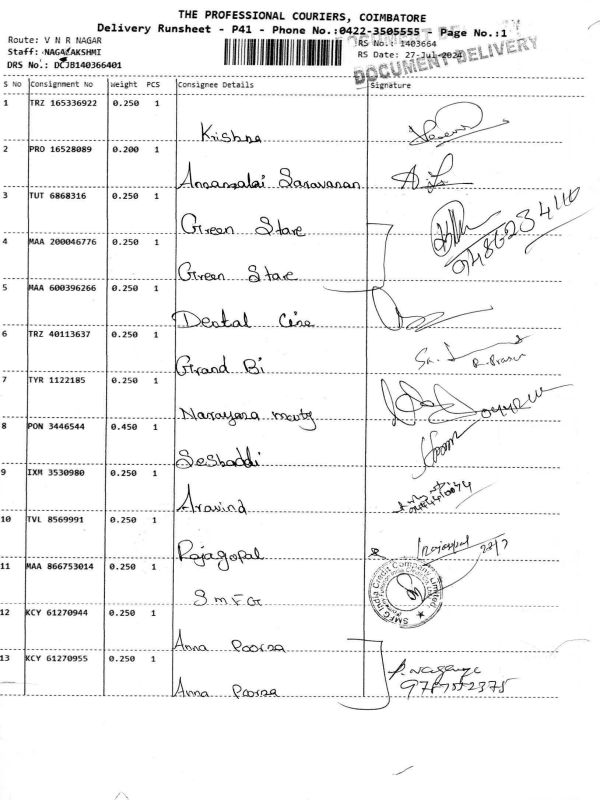 THE PROFESSIONAL COURIERS, COIMBATORE
Delivery Runsheet - P41 - Phone No.:0422-3505555 - Page No.:1
DOCUMENT DELIVERY
DOCUMENT DELIVERY
Route: V N R NAGAR
RS No.: 1403664
Staff: NAGALAKSHMI
RS Date: 27-Jul-2024
DRS No.: DCJB140366401
S No Consignment No Weight PCS Consignee Details Signature
1 TRZ 165336922 0.250 1
Krishna
2 PRO 16528089 0.200 1
Annamalai Saravanan
3 TUT 6868316 0.250 1
Green Stare
9486234110
4 MAA 200046776 0.250 1
Green Stare
5 MAA 600396266 0.250 1
Dental Cine
6 TRZ 40113637 0.250 1
Grand Bi
7 TYR 1122185 0.250 1
Narayana
8 PON 3446544 0.450 1
Seshaddi
9 IXM 3530980 0.250 1
Aravind
10 TVL 8569991 0.250 1
Rajagopal
Rajagopal
11 MAA 866753014 0.250 1
SMFG
SMFG India Credit Company Limited
12 KCY 61270944 0.250 1
Anna Poorna
13 KCY 61270955 0.250 1
Anna Poorna